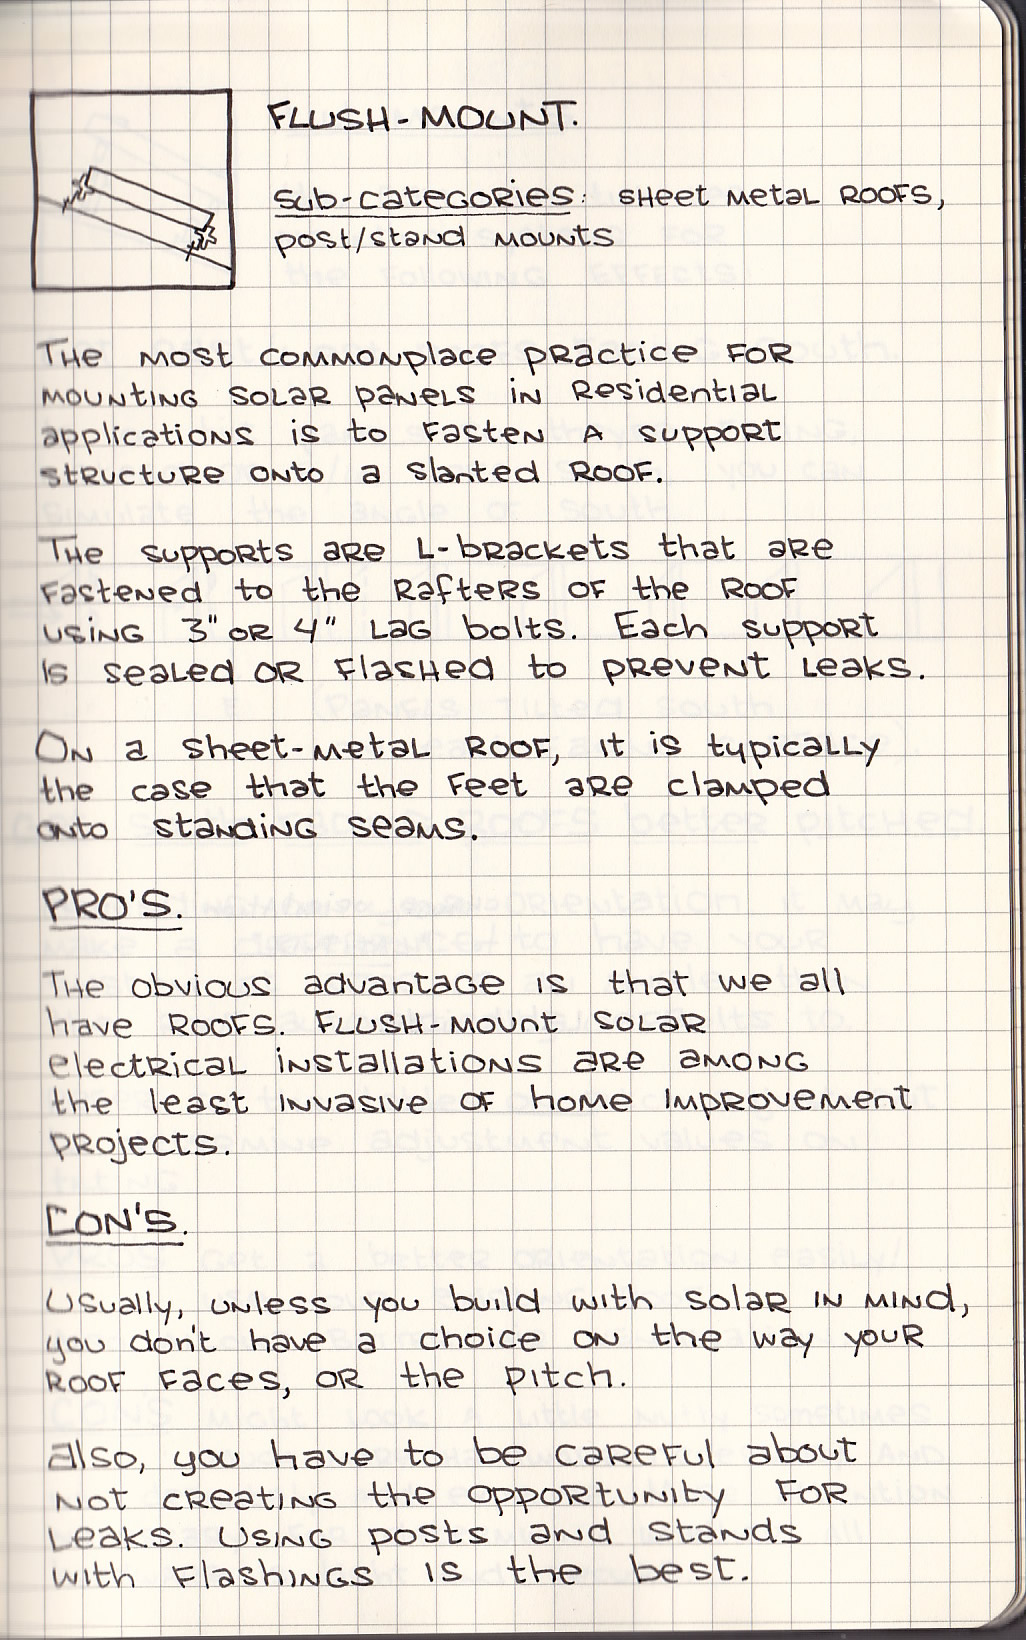 FLUSH-MOUNT.
Sub-categories: Sheet Metal Roofs,
post/stand mounts
The most commonplace practice for
mounting solar panels in residential
applications is to fasten a support
structure onto a slanted roof.
The supports are L-brackets that are
fastened to the rafters of the roof
using 3" or 4" lag bolts. Each support
is sealed or flashed to prevent leaks.
On a sheet-metal roof, it is typically
the case that the feet are clamped
onto standing seams.
PRO'S.
The obvious advantage is that we all
have roofs. Flush-mount solar
electrical installations are among
the least invasive of home improvement
projects.
CON'S.
Usually, unless you build with solar in mind,
you don't have a choice on the way your
roof faces, or the pitch.
Also, you have to be careful about
not creating the opportunity for
leaks. Using posts and stands
with flashings is the best.